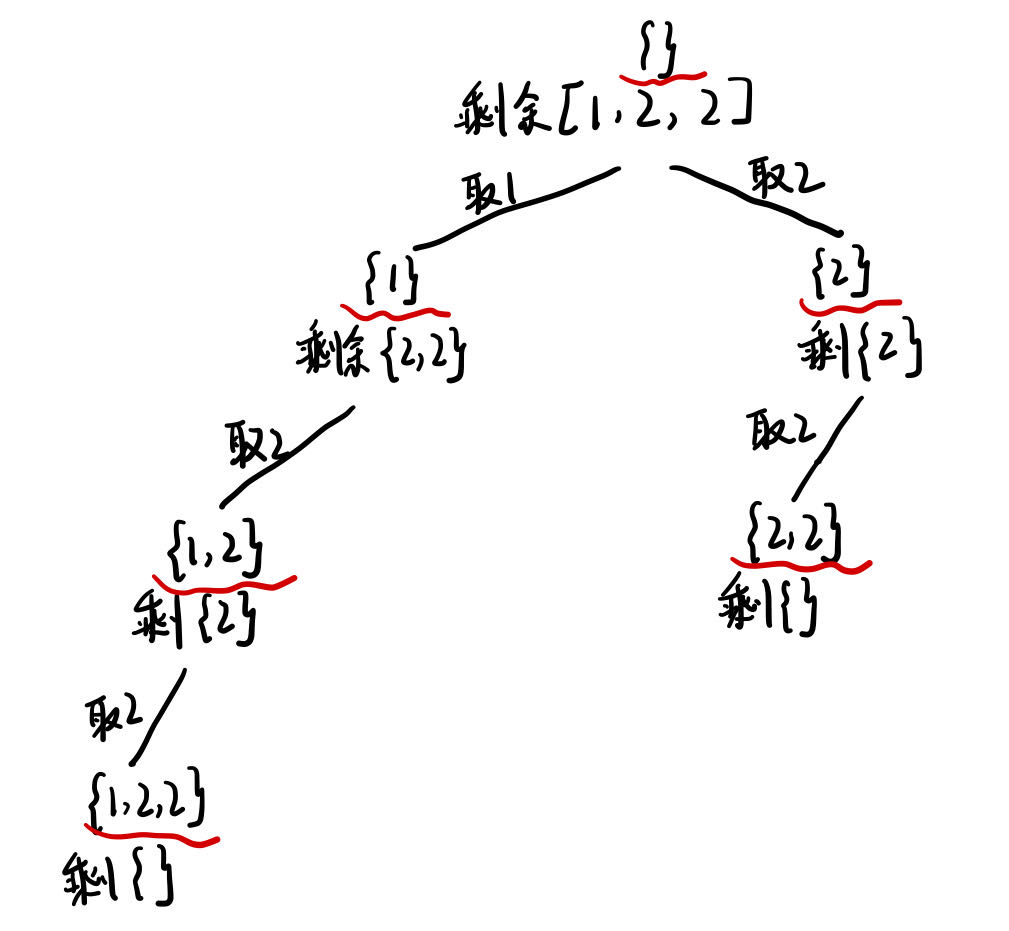 {}
剩余[1,2,2]
取1
取2
{1}
剩余{2,2}
{2}
剩{2}
取2
取2
{1,2}
剩{2}
{2,2}
剩{}
取2
{1,2,2}
剩{}